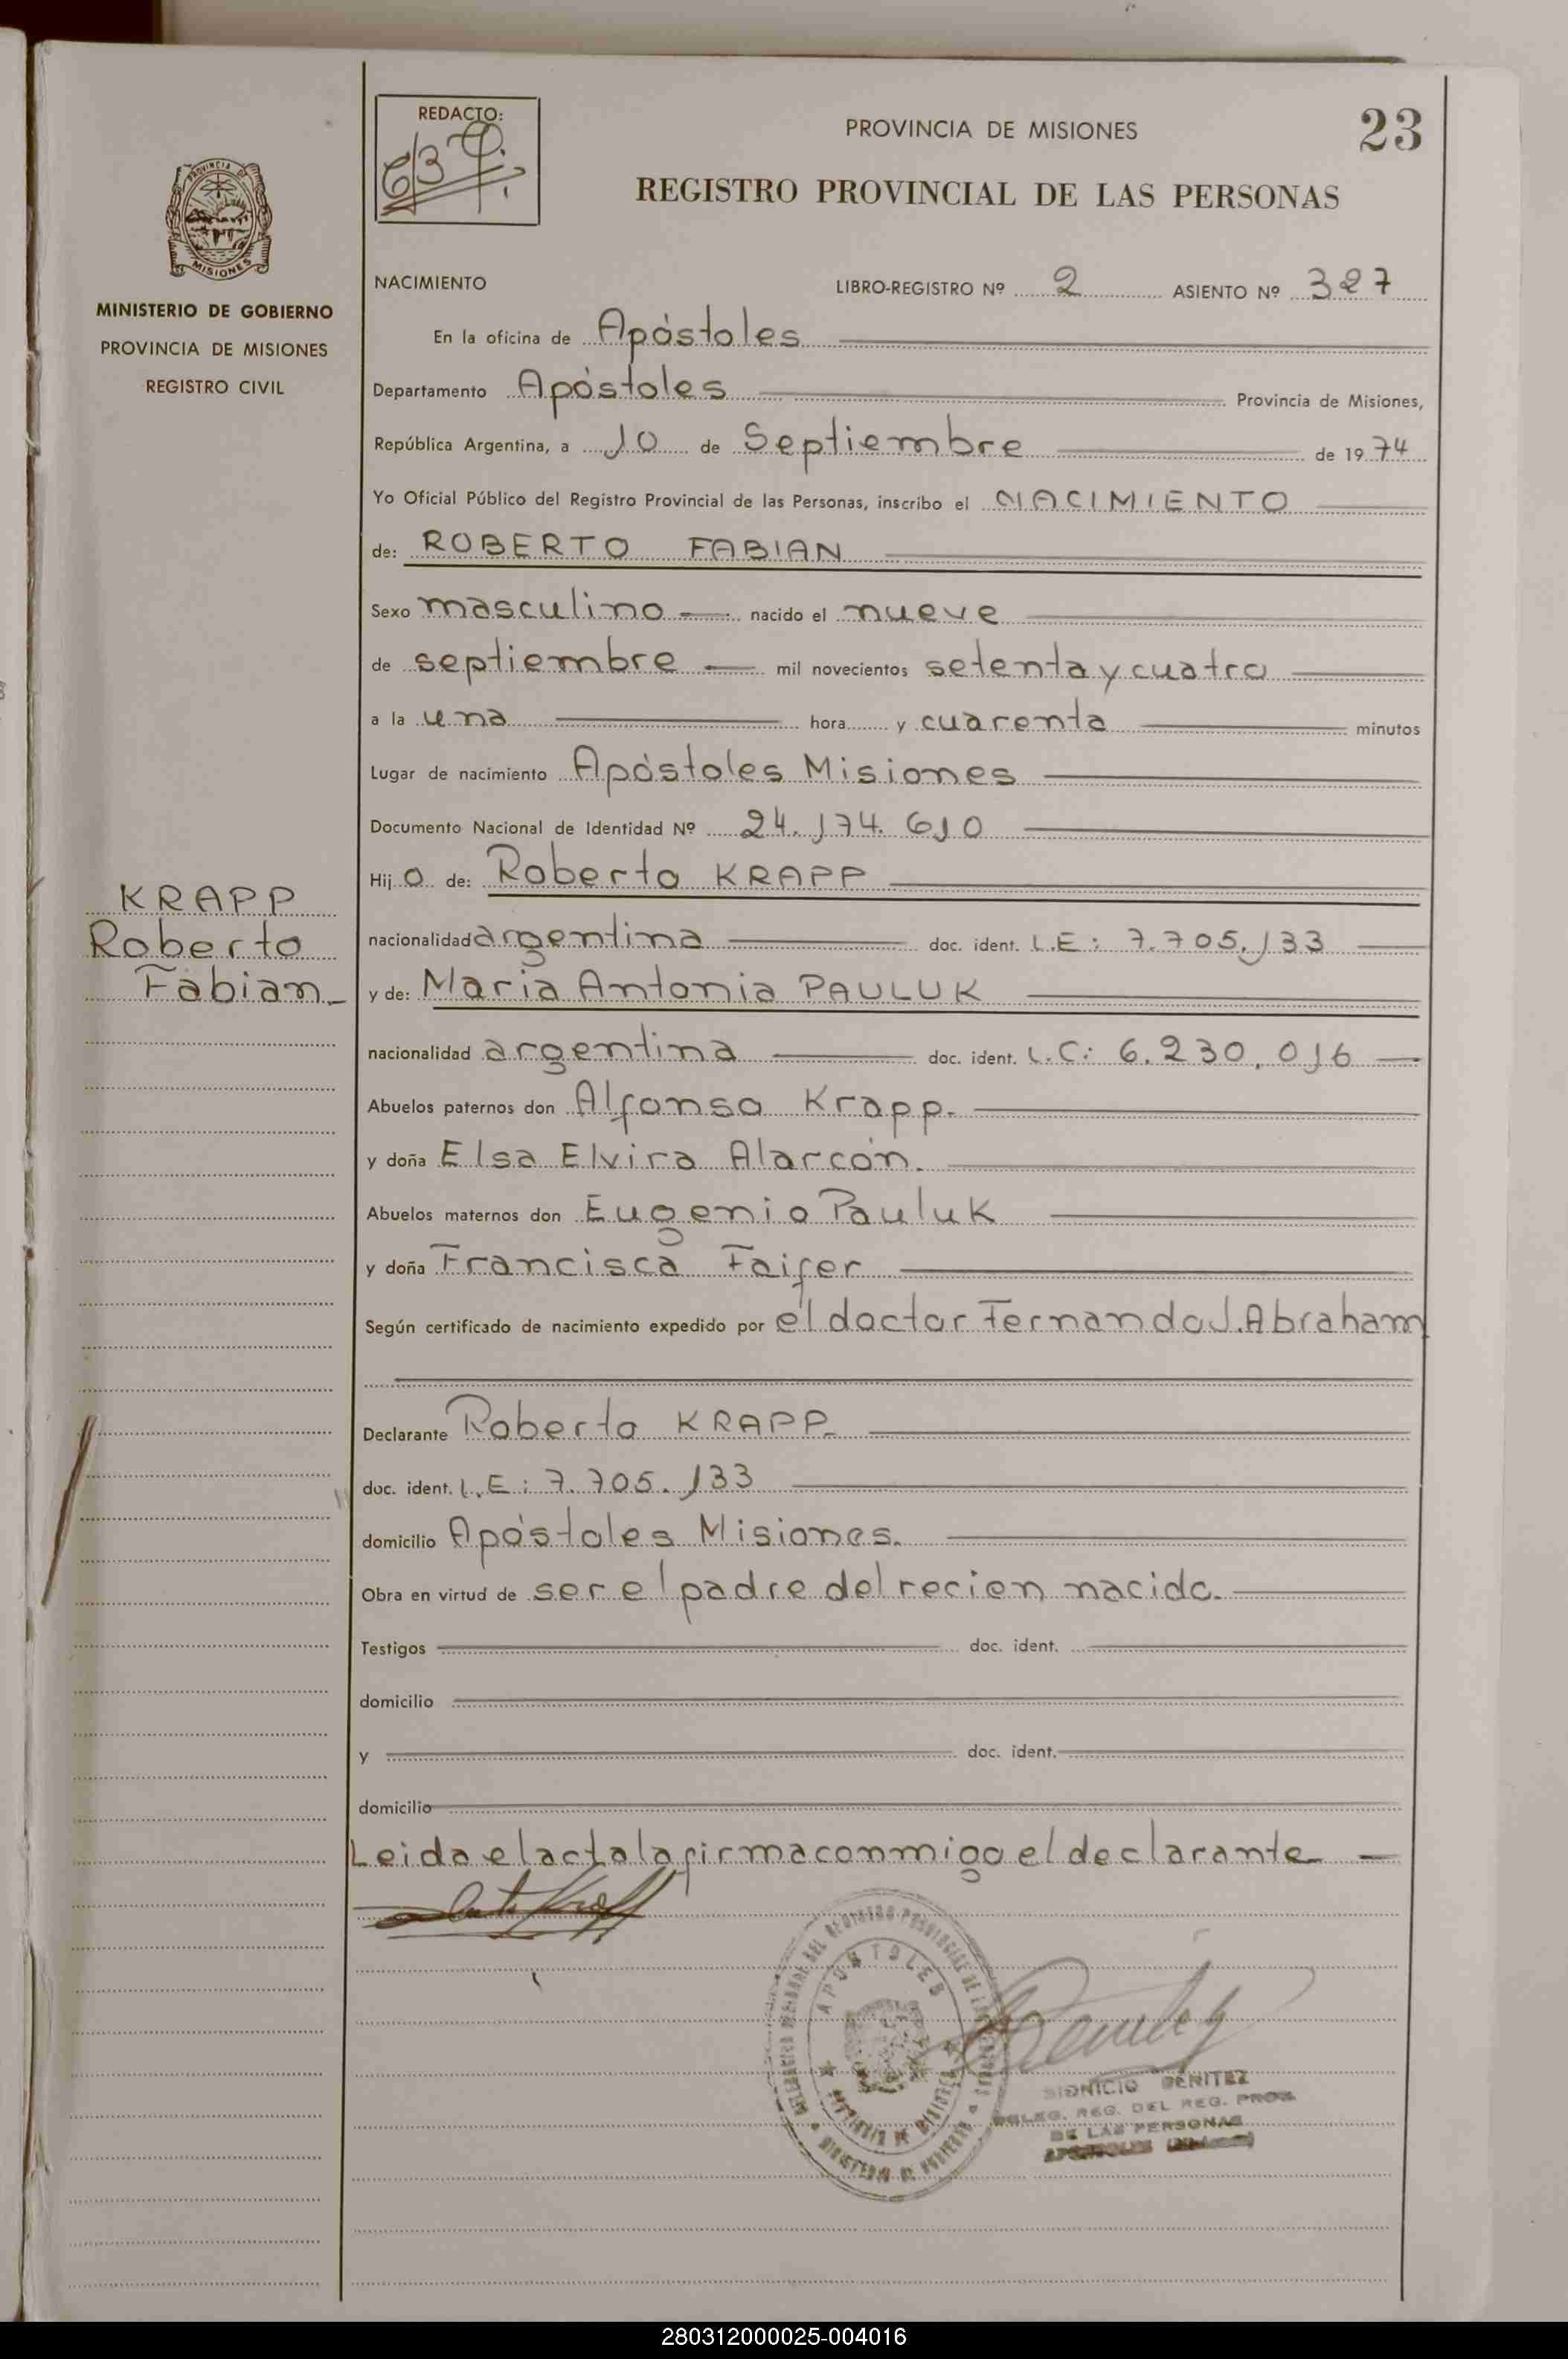 REDACTO:
PROVINCIA DE MISIONES
23
REGISTRO PROVINCIAL DE LAS PERSONAS
MISIONES
MINISTERIO DE GOBIERNO
PROVINCIA DE MISIONES
REGISTRO CIVIL
NACIMIENTO LIBRO-REGISTRO Nº 2 ASIENTO Nº 327
En la oficina de Apóstoles
Departamento Apóstoles Provincia de Misiones,
República Argentina, a 10 de Septiembre de 1974
Yo Oficial Público del Registro Provincial de las Personas, inscribo el NACIMIENTO
de: ROBERTO FABIAN
Sexo masculino nacido el nueve
de septiembre mil novecientos setenta y cuatro
a la una hora y cuarenta minutos
Lugar de nacimiento Apóstoles Misiones
Documento Nacional de Identidad Nº 24.174.610
Hijo de: Roberto KRAPP
KRAPP
Roberto
Fabian
nacionalidad argentina doc. ident. L.E: 7.705.133
y de: Maria Antonia PAULUK
nacionalidad argentina doc. ident. L.C: 6.230.016
Abuelos paternos don Alfonso Krapp.
y doña Elsa Elvira Alarcón.
Abuelos maternos don Eugenio Pauluk
y doña Francisca Faifer
Según certificado de nacimiento expedido por el doctor Fernando J. Abraham
Declarante Roberto KRAPP.
doc. ident. L.E: 7.705.133
domicilio Apóstoles Misiones.
Obra en virtud de ser el padre del recien nacido.
Testigos doc. ident.
domicilio
y doc. ident.
domicilio
Leida el acta la firma conmigo el declarante
APOSTOLES
DIONICIO BENITEZ
DELEG. REG. DEL REG. PROV.
DE LAS PERSONAS
280312000025-004016